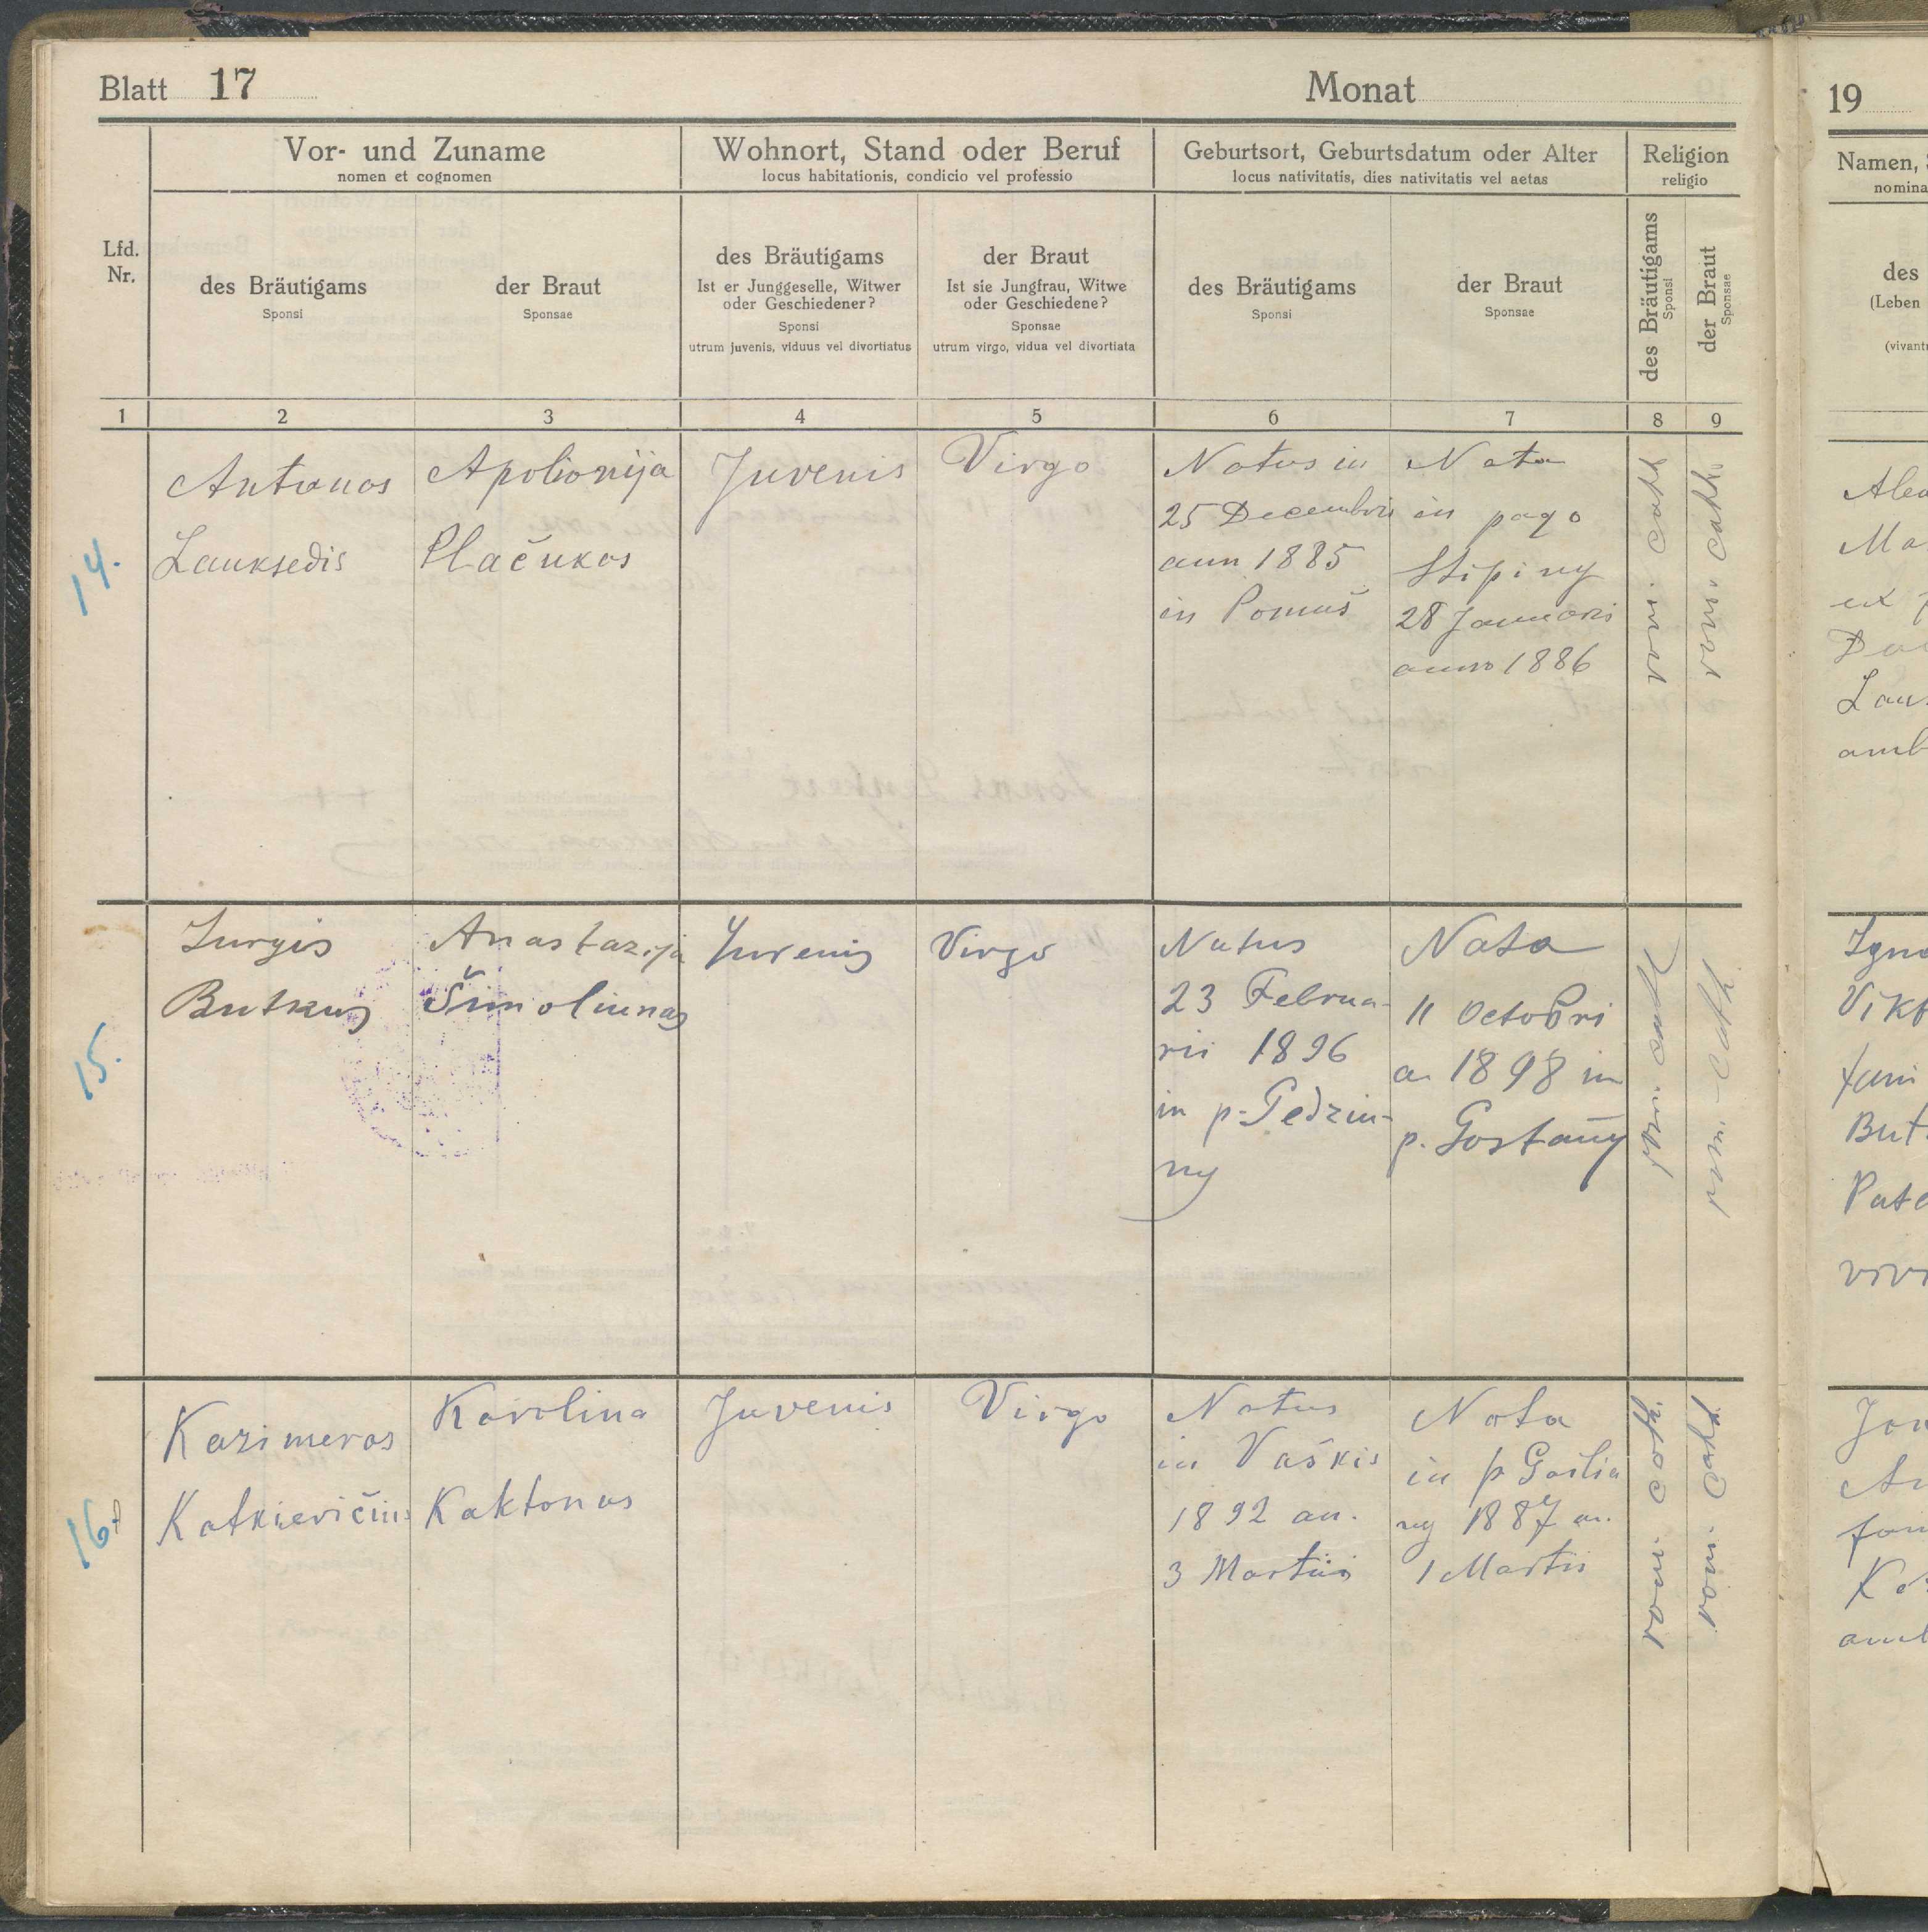 Blatt 17
Monat
Vor- und Zuname
nomen et cognomen
Wohnort, Stand oder Beruf
locus habitationis, condicio vel professio
Geburtsort, Geburtsdatum oder Alter
locus nativitatis, dies nativitatis vel aetas
Religion
religio
Lfd.
Nr.
des Bräutigams
Sponsi
der Braut
Sponsae
des Bräutigams
Ist er Junggeselle, Witwer
oder Geschiedener?
Sponsi
utrum juvenis, viduus vel divortiatus
der Braut
Ist sie Jungfrau, Witwe
oder Geschiedene?
Sponsae
utrum virgo, vidua vel divortiata
des Bräutigams
Sponsi
der Braut
Sponsae
des Bräutigams
Sponsi
der Braut
Sponsae
1 2 3 4 5 6 7 8 9
14.
Antanas
Lauksedis
Apolionija
Plačukas
Juvenis
Virgo
Natus in
25 Decembris
ann 1885
in Pomuš
Nata
in pago
Stipiny
28 Januaris
anno 1886
rom. cath
rom. cath.
15.
Jurgis
Butkus
Anastazija
Šimoliunas
Juvenis
Virgo
Natus
23 Februa-
rii 1896
in p. Gedziu-
ny
Nata
11 Octobri
a 1898 in
p. Gostany
rom. cath
rom. cath
16.
Kazimeras
Katkievičius
Karolina
Kaktonas
Juvenis
Virgo
Natus
in Vaškis
1892 an.
3 Martii
Nata
in p Gailiu
ny 1887 an.
1 Martis
rom. cath.
rom. cath.
19
Namen,
nomina
des
(Leben
Ma
Lau
Igna
Vikt
But